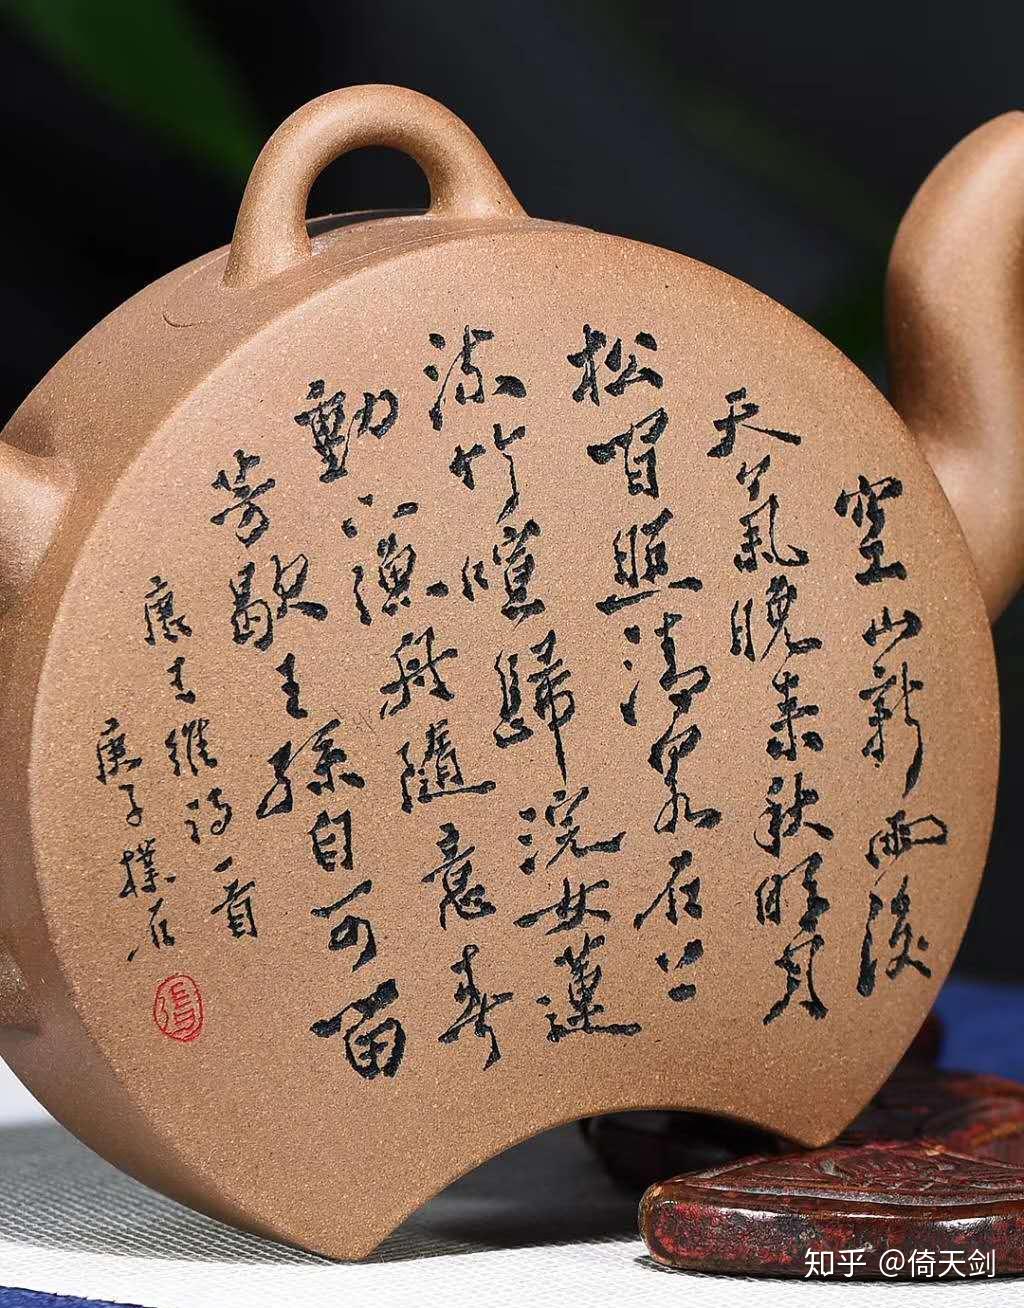 空山新雨後
天氣晚来秋明月
松間照清泉石上
流竹喧歸浣女蓮
動下漁舟隨意春
芳歇王孫自可留
唐王維詩一首
庚子樸石
知乎 @倚天剑